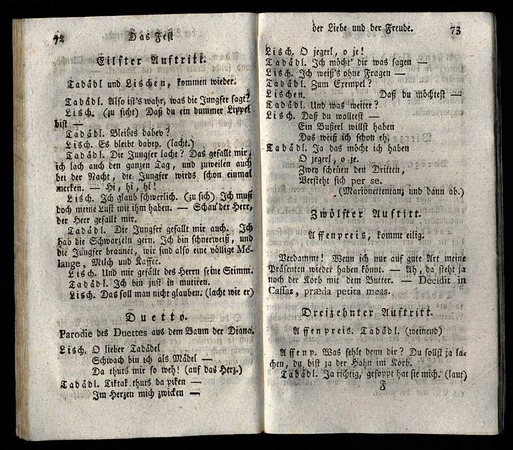 72 Das Fest
Eilfter Auftritt.
Tadädl und Lischen, kommen wieder.
Tadädl. Also ist's wahr, was die Jungfer sagt?
Lisch. (zu sich) Daß du ein dummer Lippel
bist —
Tadädl. Bleibts dabey?
Lisch. Es bleibt dabey. (lacht.)
Tadädl. Die Jungfer lacht? Das gefällt mir,
ich lach auch den ganzen Tag, und zuweilen auch
bei der Nacht, die Jungfer wirds schon einmal
merken. — Hi, hi, hi!
Lisch. Ich glaub schwerlich. (zu sich) Ich muß
doch meine Lust mit ihm haben. — Schau der Herr,
der Herr gefällt mir.
Tadädl. Die Jungfer gefällt mir auch. Ich
hab die Schwarzeln gern. Ich bin schneeweiß, und
die Jungfer braunet, wir sind also eine völlige Me-
lange, Milch und Kaffee.
Lisch. Und mir gefällt des Herrn seine Stimm.
Tadädl. Ich bin just in mutiren.
Lisch. Das soll man nicht glauben. (lacht wie er)
Duetto.
Parodie des Duettes aus dem Baum der Diana.
Lisch. O lieber Tadädel
Schwach bin ich als Mädel —
Da thuts mir so weh! (auf das Herz.)
Tadädl. Tiktak thuts da piken —
Im Herzen mich zwicken —
der Liebe und der Freude. 73
Lisch. O jegerl, o je!
Tadädl. Ich möcht' dir was sagen —
Lisch. Ich weiß's ohne Fragen —
Tadädl. Zum Exempel?
Lischen. Daß du möchtest —
Tadädl. Und was weiter?
Lisch. Daß du wolltest —
Ein Busserl willst haben
Das weiß ich schon eh,
Tadädl. Ja das möcht ich haben
O jegerl, o je.
Zwey scheuen den Dritten,
Versteht sich per se.
(Marionettenmäß und dann ab.)
Zwölfter Auftritt.
Affenpreis, kommt eilig.
Verdammt! Wenn ich nur auf gute Art meine
Präsenten wieder haben könnt. — Ah, da steht ja
noch der Korb mit dem Butter. — Decidit in
Cassas, præda petita meas.
Dreizehnter Auftritt.
Affenpreis. Tadädl. (weinend)
Affenp. Was fehlt denn dir? Du sollst ja la-
chen, du bist ja der Hahn im Korb.
Tadädl. Ja richtig, gefoppt hat sie mich. (laut)